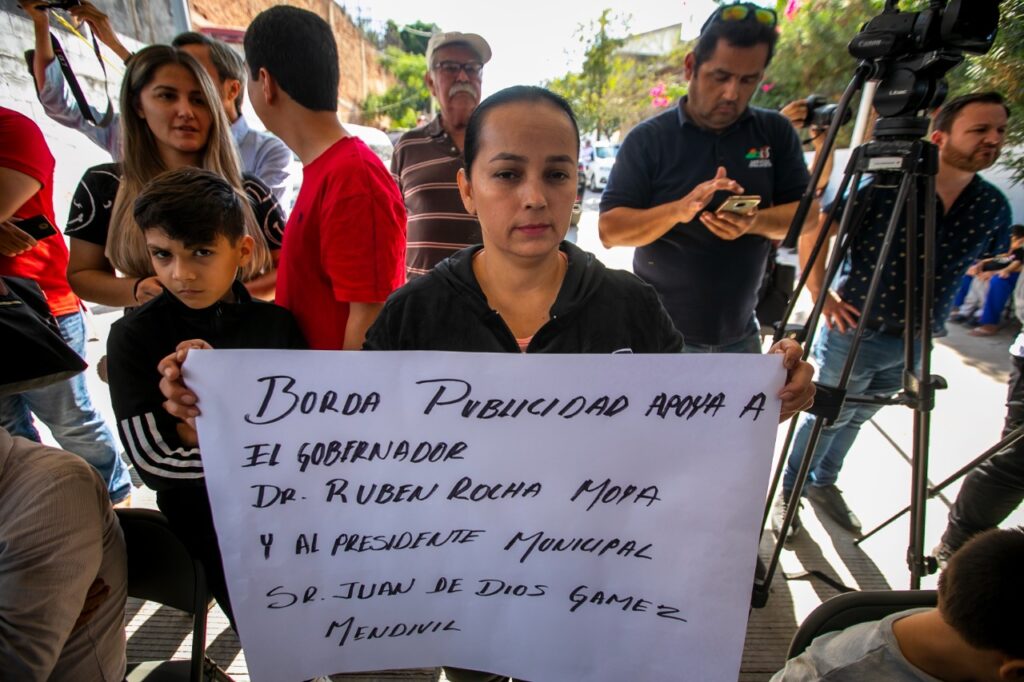 BORDA PUBLICIDAD APOYA A
EL GOBERNADOR
DR. RUBEN ROCHA MOYA
Y AL PRESIDENTE MUNICIPAL
SR. JUAN DE DIOS GAMEZ
MENDIVIL
Canon